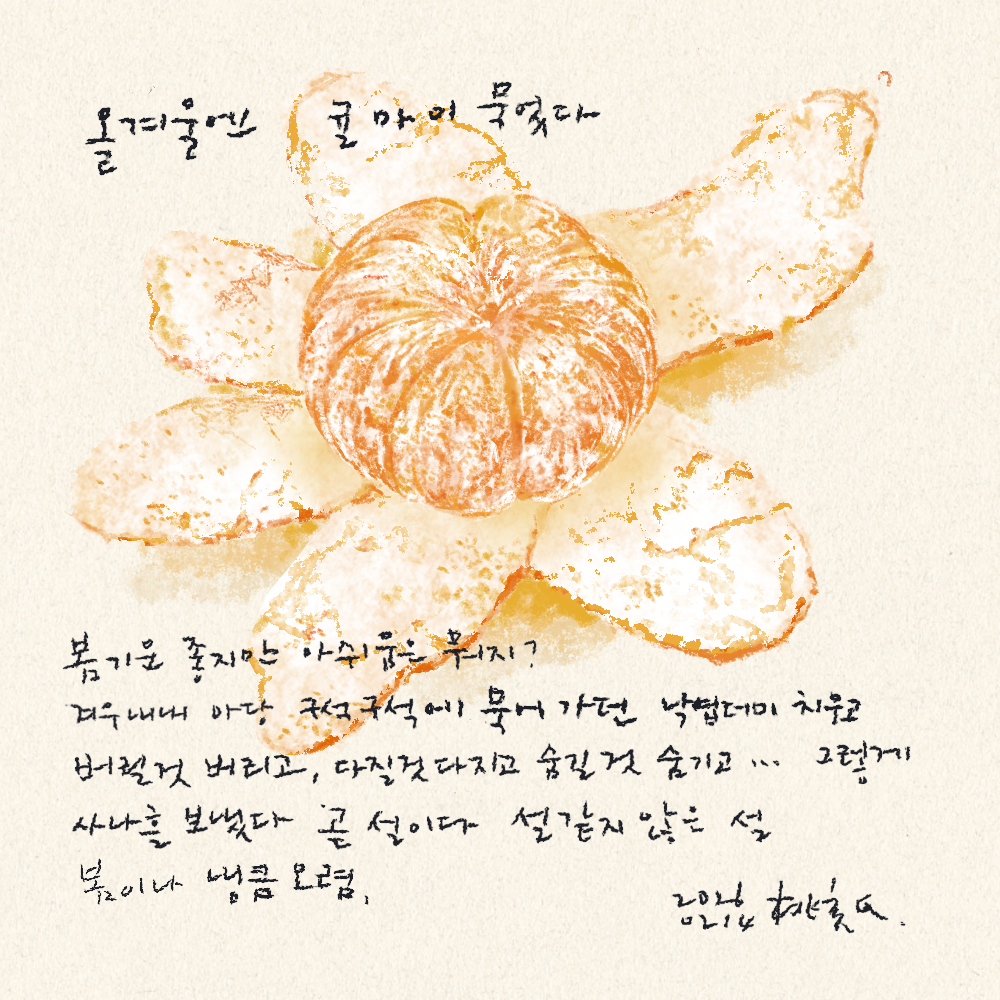 올겨울엔 귤 마이 묵었다
봄기운 좋지만 아쉬움은 뭐지?
겨우내내 마당 구석구석에 묵어 가던 낙엽더미 치우고
버릴것 버리고, 다질것 다지고 숨길것 숨기고... 그렇게
사나흘 보냈다 곧 설이다 설같지 않은 설
봄이나 냉큼 오렴.
2026
02.14